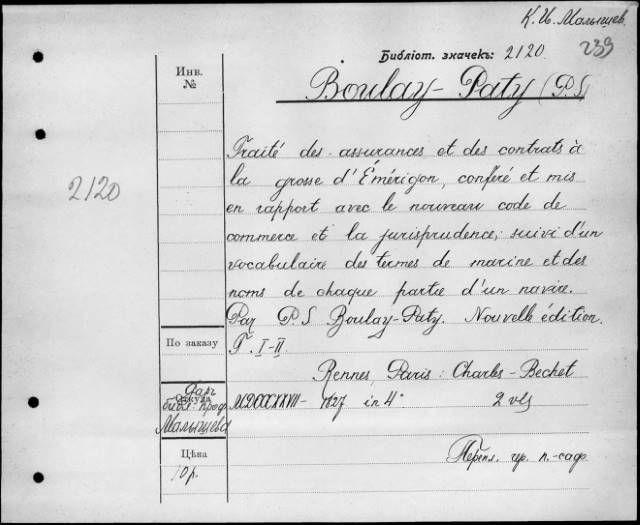 К. И. Малышев.
Библіот. значекъ: 2120. 239
Инв. №
Boulay-Paty (P. S
2120
Traité des assurances et des contrats à
la grosse d'Émérigon, conféré et mis
en rapport avec le nouveau code de
commerce et la jurisprudence; suivi d'un
vocabulaire des termes de marine et des
noms de chaque partie d'un navire.
Par P. S Boulay-Paty. Nouvelle édition.
По заказу
T. I-II.
Rennes, Paris: Charles-Bechet
Откуда
Даръ
библ. проф.
Малышева
MDCCCXXVII- 1827 in 4° 2 vls
Цѣна
10 р.
Перепл. чер. п.-саф.